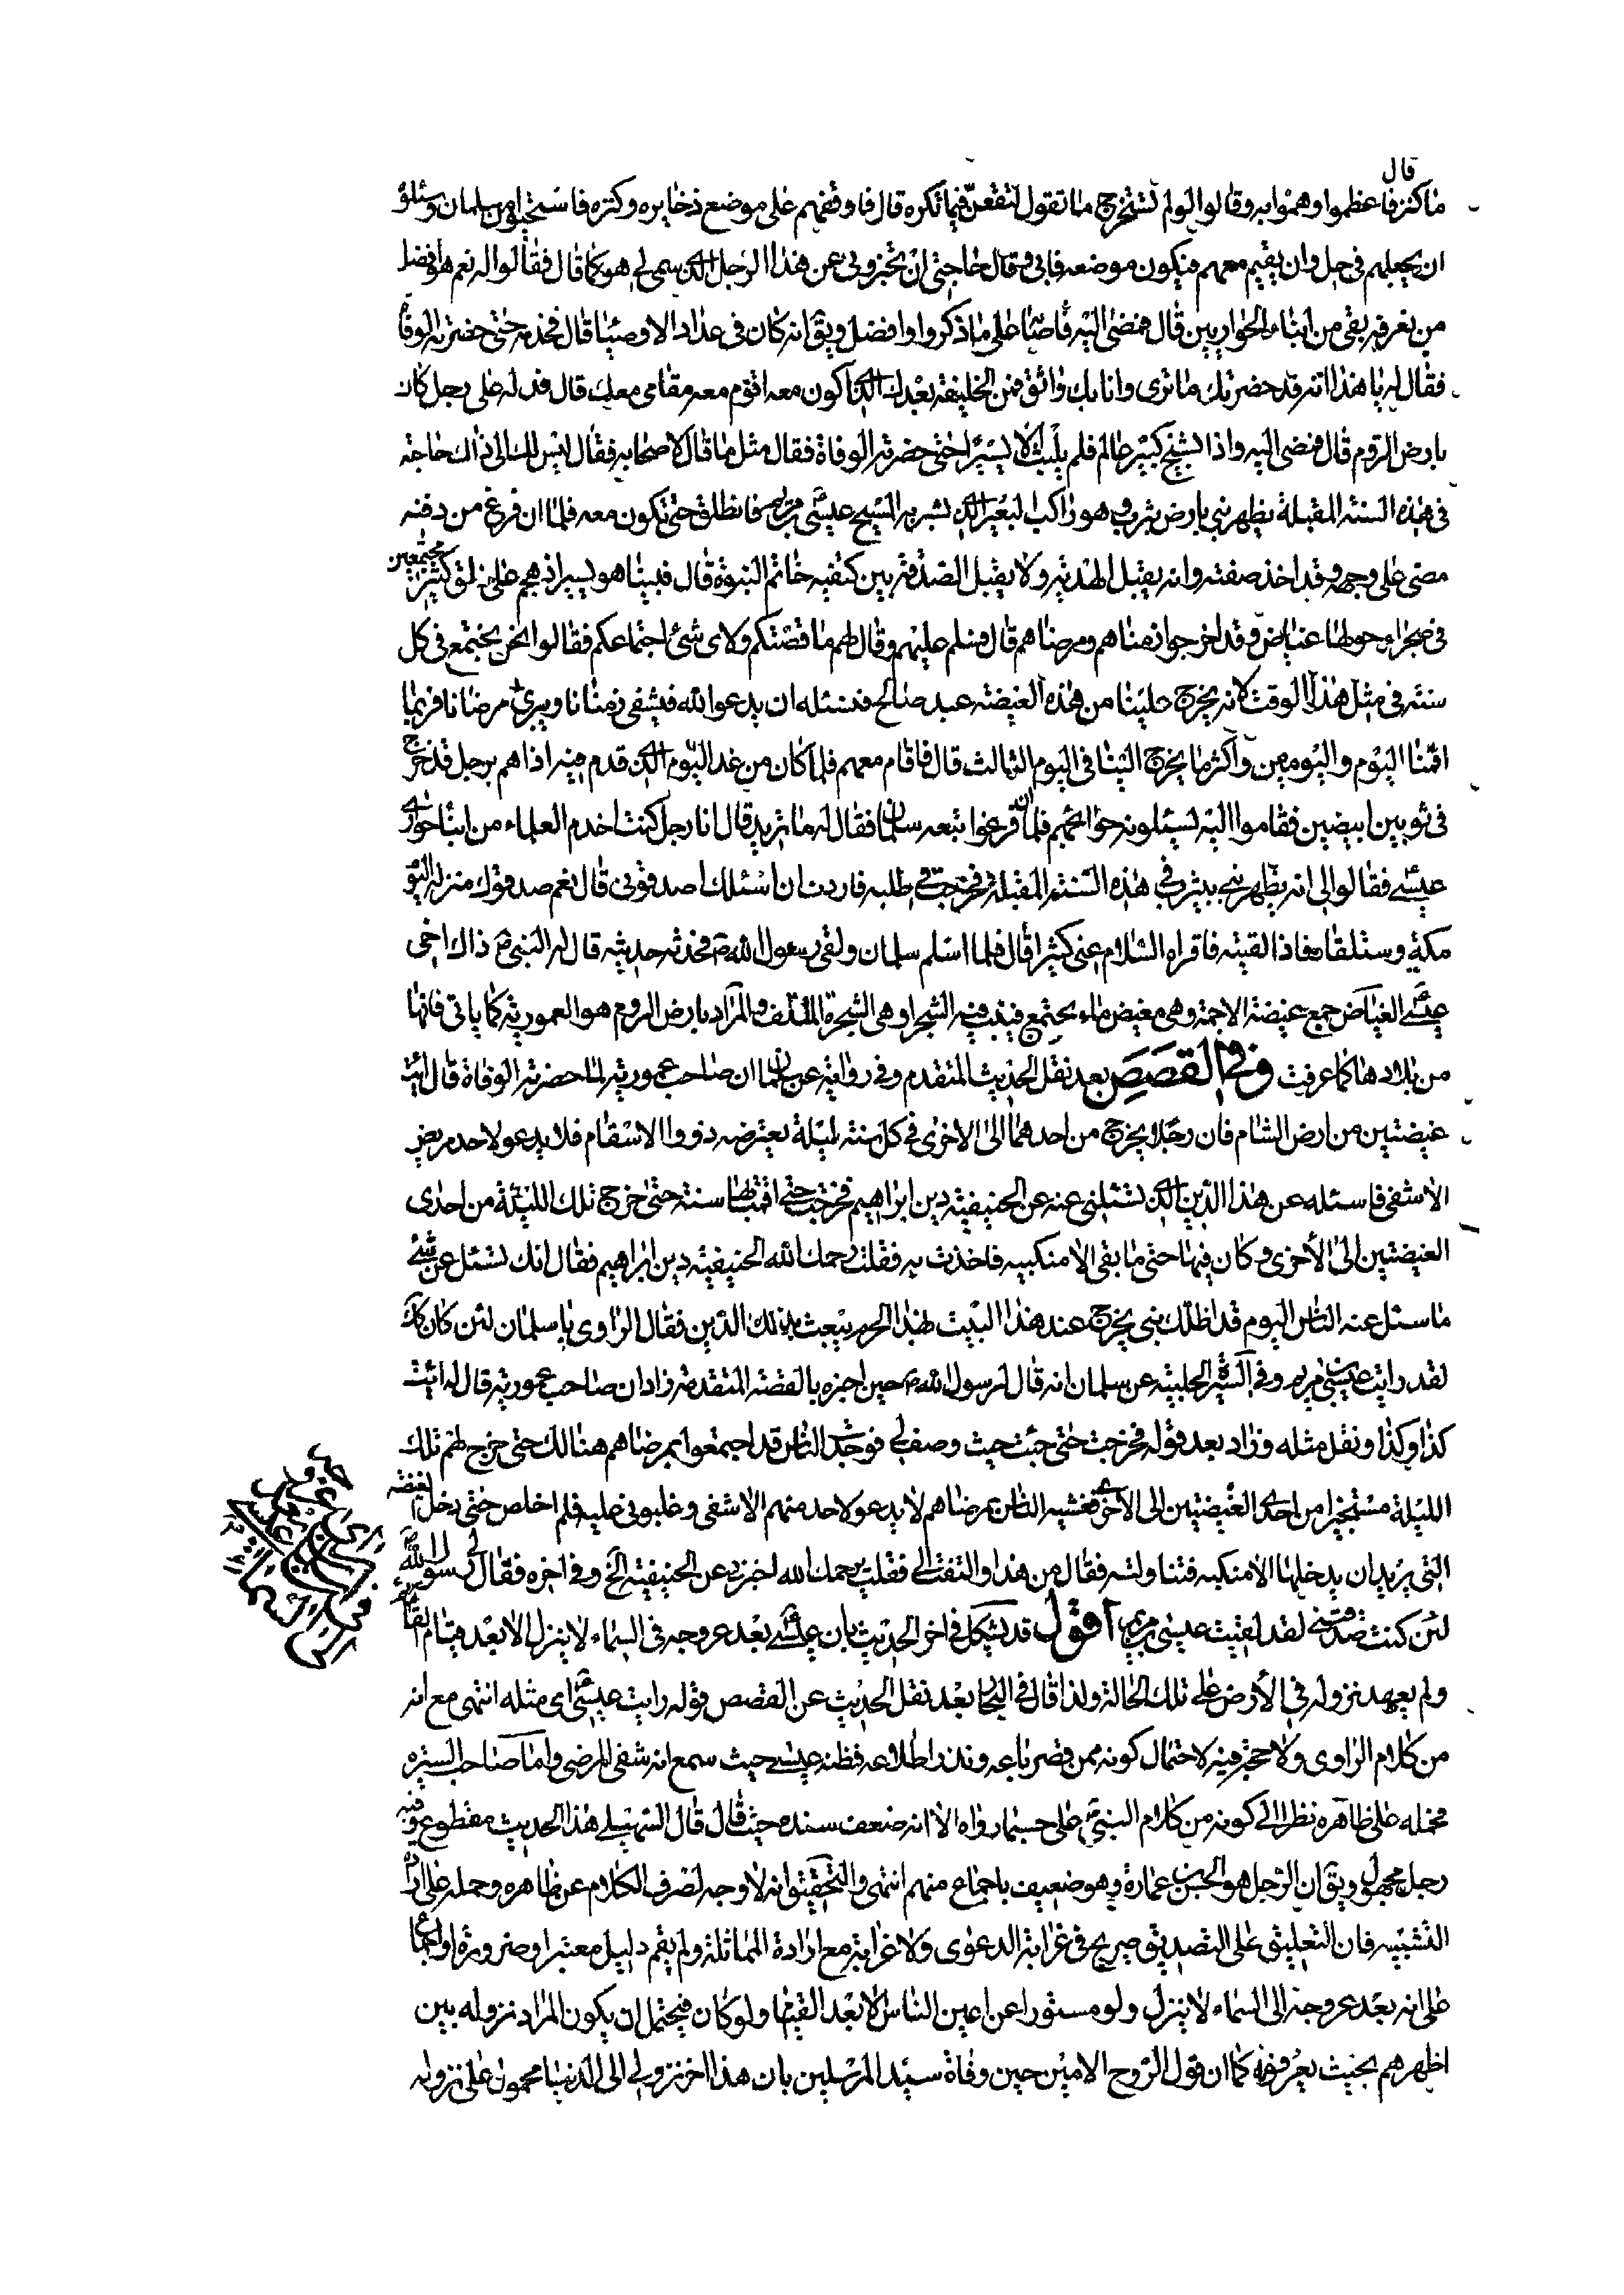 قال
ما كنز فاعظموا وهموا به وقالوا لو لم تستخرج ما تقول لتقعن فيما تكره قال فاوقفهم على موضع ذخايره وكنزه فاستخرجوا من سلمان وسئلوا
ان يجعلهم فى حل وان يقيم معهم فيكون موضعه فابى وقال حاجتى ان تخبرونى عن هذا الرجل الذى سمى لى هو كما قال فقالوا له نعم هو افضل
من نعرفه بقى من ابناء الحواريين قال فمضى اليه فاصابه على ما ذكروا وافضل ويق انه كان فى عداد الاوصياء قال فخدمه حتى حضرته الوفاة
فقال له يا هذا انه قد حضرتك ما ترى وانا بك واثق فمن الخليفة بعدك الذى اكون معه اقوم معه مقامى معك قال فدله على رجل كان
بارض الروم قال فمضى اليه واذا بشيخ كبير عالم فلم يلبث الا يسيرا حتى حضرته الوفاة فقال مثل ما قال لاصحابه فقال ليس لك الى ذاك حاجة
فى هذه السنة المقبلة يظهر نبى بارض يثرب وهو راكب البعير الذى بشر به المسيح عيسى بن مريم فانطلق حتى تكون معه فلما ان فرغ من دفنه
مضى على وجهه وقد اخذ صفته وانه يقبل الهدية ولا يقبل الصدقة بين كتفيه خاتم النبوة قال فبينا هو يسير اذ هجم على خلق كثير مجتمعين
فى صحراء حولها غياض وقد اخرجوا زمناهم ومرضاهم قال فسلم عليهم وقال لهم ما قصتكم ولاى شئ اجتماعكم فقالوا نحن نجتمع فى كل
سنة فى مثل هذا الوقت لانه يخرج علينا من هذه الغيضة عبد صالح فنسئله ان يدعو الله فيشفى زمنانا ويبرئ مرضانا فربما
اقمنا اليوم واليومين واكثر ما يخرج الينا فى اليوم الثالث قال فاقام معهم فلما كان من غد اليوم الذى قدم فيه اذا هم برجل قد خرج
فى ثوبين ابيضين فقاموا اليه يسئلونه حوائجهم فلما فرغوا تبعه سلمان فقال له ما تريد قال انا رجل كنت اخدم العلماء من ابناء حوارى
عيسى فقالوا لى انه يظهر نبى بيثرب فى هذه السنة المقبلة فخرجت فى طلبه فاردت ان اسئلك اصدقونى قال نعم صدقوك منزله اليوم
مكة وستلقاه فاذا لقيته فاقراه السلام عنى كثيرا قال فلما اسلم سلمان ولقى رسول الله ص فحدثه حديثه قال له النبى ص ذاك اخى
عيسى الغياض جمع غيضة الاجمة وهى مغيض ماء يجتمع فينبت فيه الشجر او هى الشجرة الملتف والمراد بارض الروم هو العمورية كما ياتى فانها
من بلادها كما عرفت وفى القصص بعد نقل الحديث المتقدم وفى رواية عن سلمان ان صاحب عمورية لما حضرته الوفاة قال ائت
غيضتين من ارض الشام فان رجلا يخرج من احدهما الى الاخرى فى كل سنة ليلة يعترضه ذووا الاسقام فلا يدعو لاحد مرض
الا شفى فاسئله عن هذا الدين الذى تسئلنى عنه عن الحنيفية دين ابراهيم فخرجت حتى اقمت بها سنة حتى خرج تلك الليلة من احدى
الغيضتين الى الأخرى وكان فيها حتى ما بقى الا منكبيه فاخذت به فقلت رحمك الله الحنيفية دين ابراهيم فقال انك تسئل عن شئ
ما سئل عنه الناس اليوم قد اظلك نبى يخرج عند هذا البيت بهذا الحرم يبعث بذلك الدين فقال الراوى يا سلمان لئن كان كك
لقد رايت عيسى بن مريم وفى السيرة الحلبية عن سلمان انه قال لرسول الله ص حين اخبره بالقصة المتقدمة زاد ان صاحب عمورية قال له ائت
كذا وكذا ونقل مثله وزاد بعد قوله فخرجت حتى جئت حيث وصف لى فوجدت الناس قد اجتمعوا بمرضاهم هنالك حتى خرج لهم تلك
الليلة مستجيزا من احدى الغيضتين الى الاخرى فغشيه الناس بمرضاهم لا يدعو لاحد منهم الا شفى وغلبونى عليه فلم اخلص حتى دخل الغيضة
التى يريد ان يدخلها الا منكبه فتناولته فقال من هذا والتفت الى فقلت يرحمك الله اخبرنى عن الحنيفية الخ وفى اخره فقال لى رسول الله ص
لئن كنت صدقتنى لقد لقيت عيسى بن مريم اقول قد يشكل فى اخر الحديث بان عيسى بعد عروجه فى السماء لا ينزل الا بعد قيام القائم
ولم يعهد نزوله فى الأرض على تلك الحالة ولذا قال فى البحار بعد نقل الحديث عن القصص قوله رايت عيسى اى مثله انتهى مع انه
من كلام الراوى ولا حجة فيه لاحتمال كونه ممن قصر باعه ونذر اطلاعه فظنه عيسى حيث سمع انه شفى المرضى واما صاحب السيرة
فحمله على ظاهره نظرا الى كونه من كلام النبى ص على حسب ما رواه الا انه ضعف سنده حيث قال قال السهيلى هذا الحديث مقطوع وفيه
رجل مجهول ويق ان الرجل هو الحسن بن عمارة وهو ضعيف باجماع منهم انتهى والتحقيق انه لا وجه لصرف الكلام عن ظاهره وحمله على ارادة
التشبيه فان التعليق على التصديق صريح فى غرابة الدعوى ولا غرابة مع ارادة المماثلة ولم يقم دليل معتبر او ضرورة او اجماع
على انه بعد عروجه الى السماء لا ينزل ولو مستورا عن اعين الناس الا بعد القيام ولو كان فيحتمل ان يكون المراد نزوله بين
اظهرهم بحيث يعرفونه كما ان قول الروح الامين حين وفاة سيد المرسلين بان هذا اخر نزولى الى الدنيا محمول على نزوله